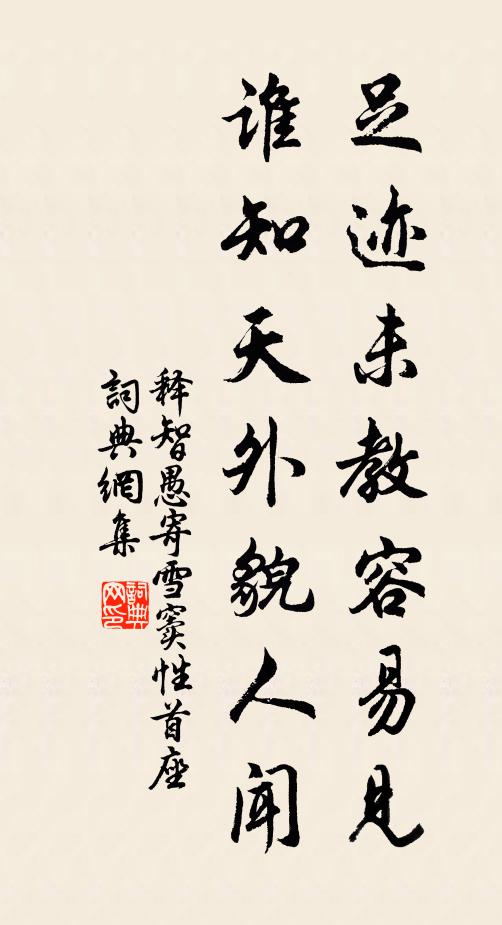 足迹未教容易见
谁知天外貌人闻
释智愚寄雪窦性首座
詞典網集
詞典网印